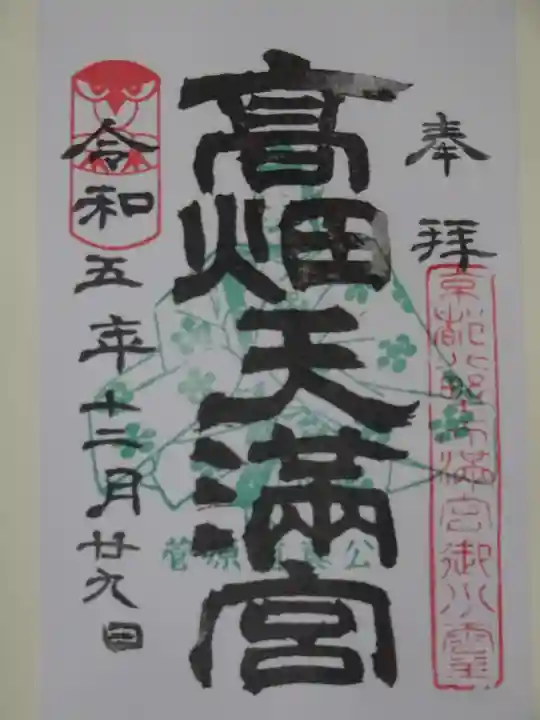 奉拝
京都北野天満宮御分霊
髙畑天満宮
菅原道真公
令和五年十二月廿九日